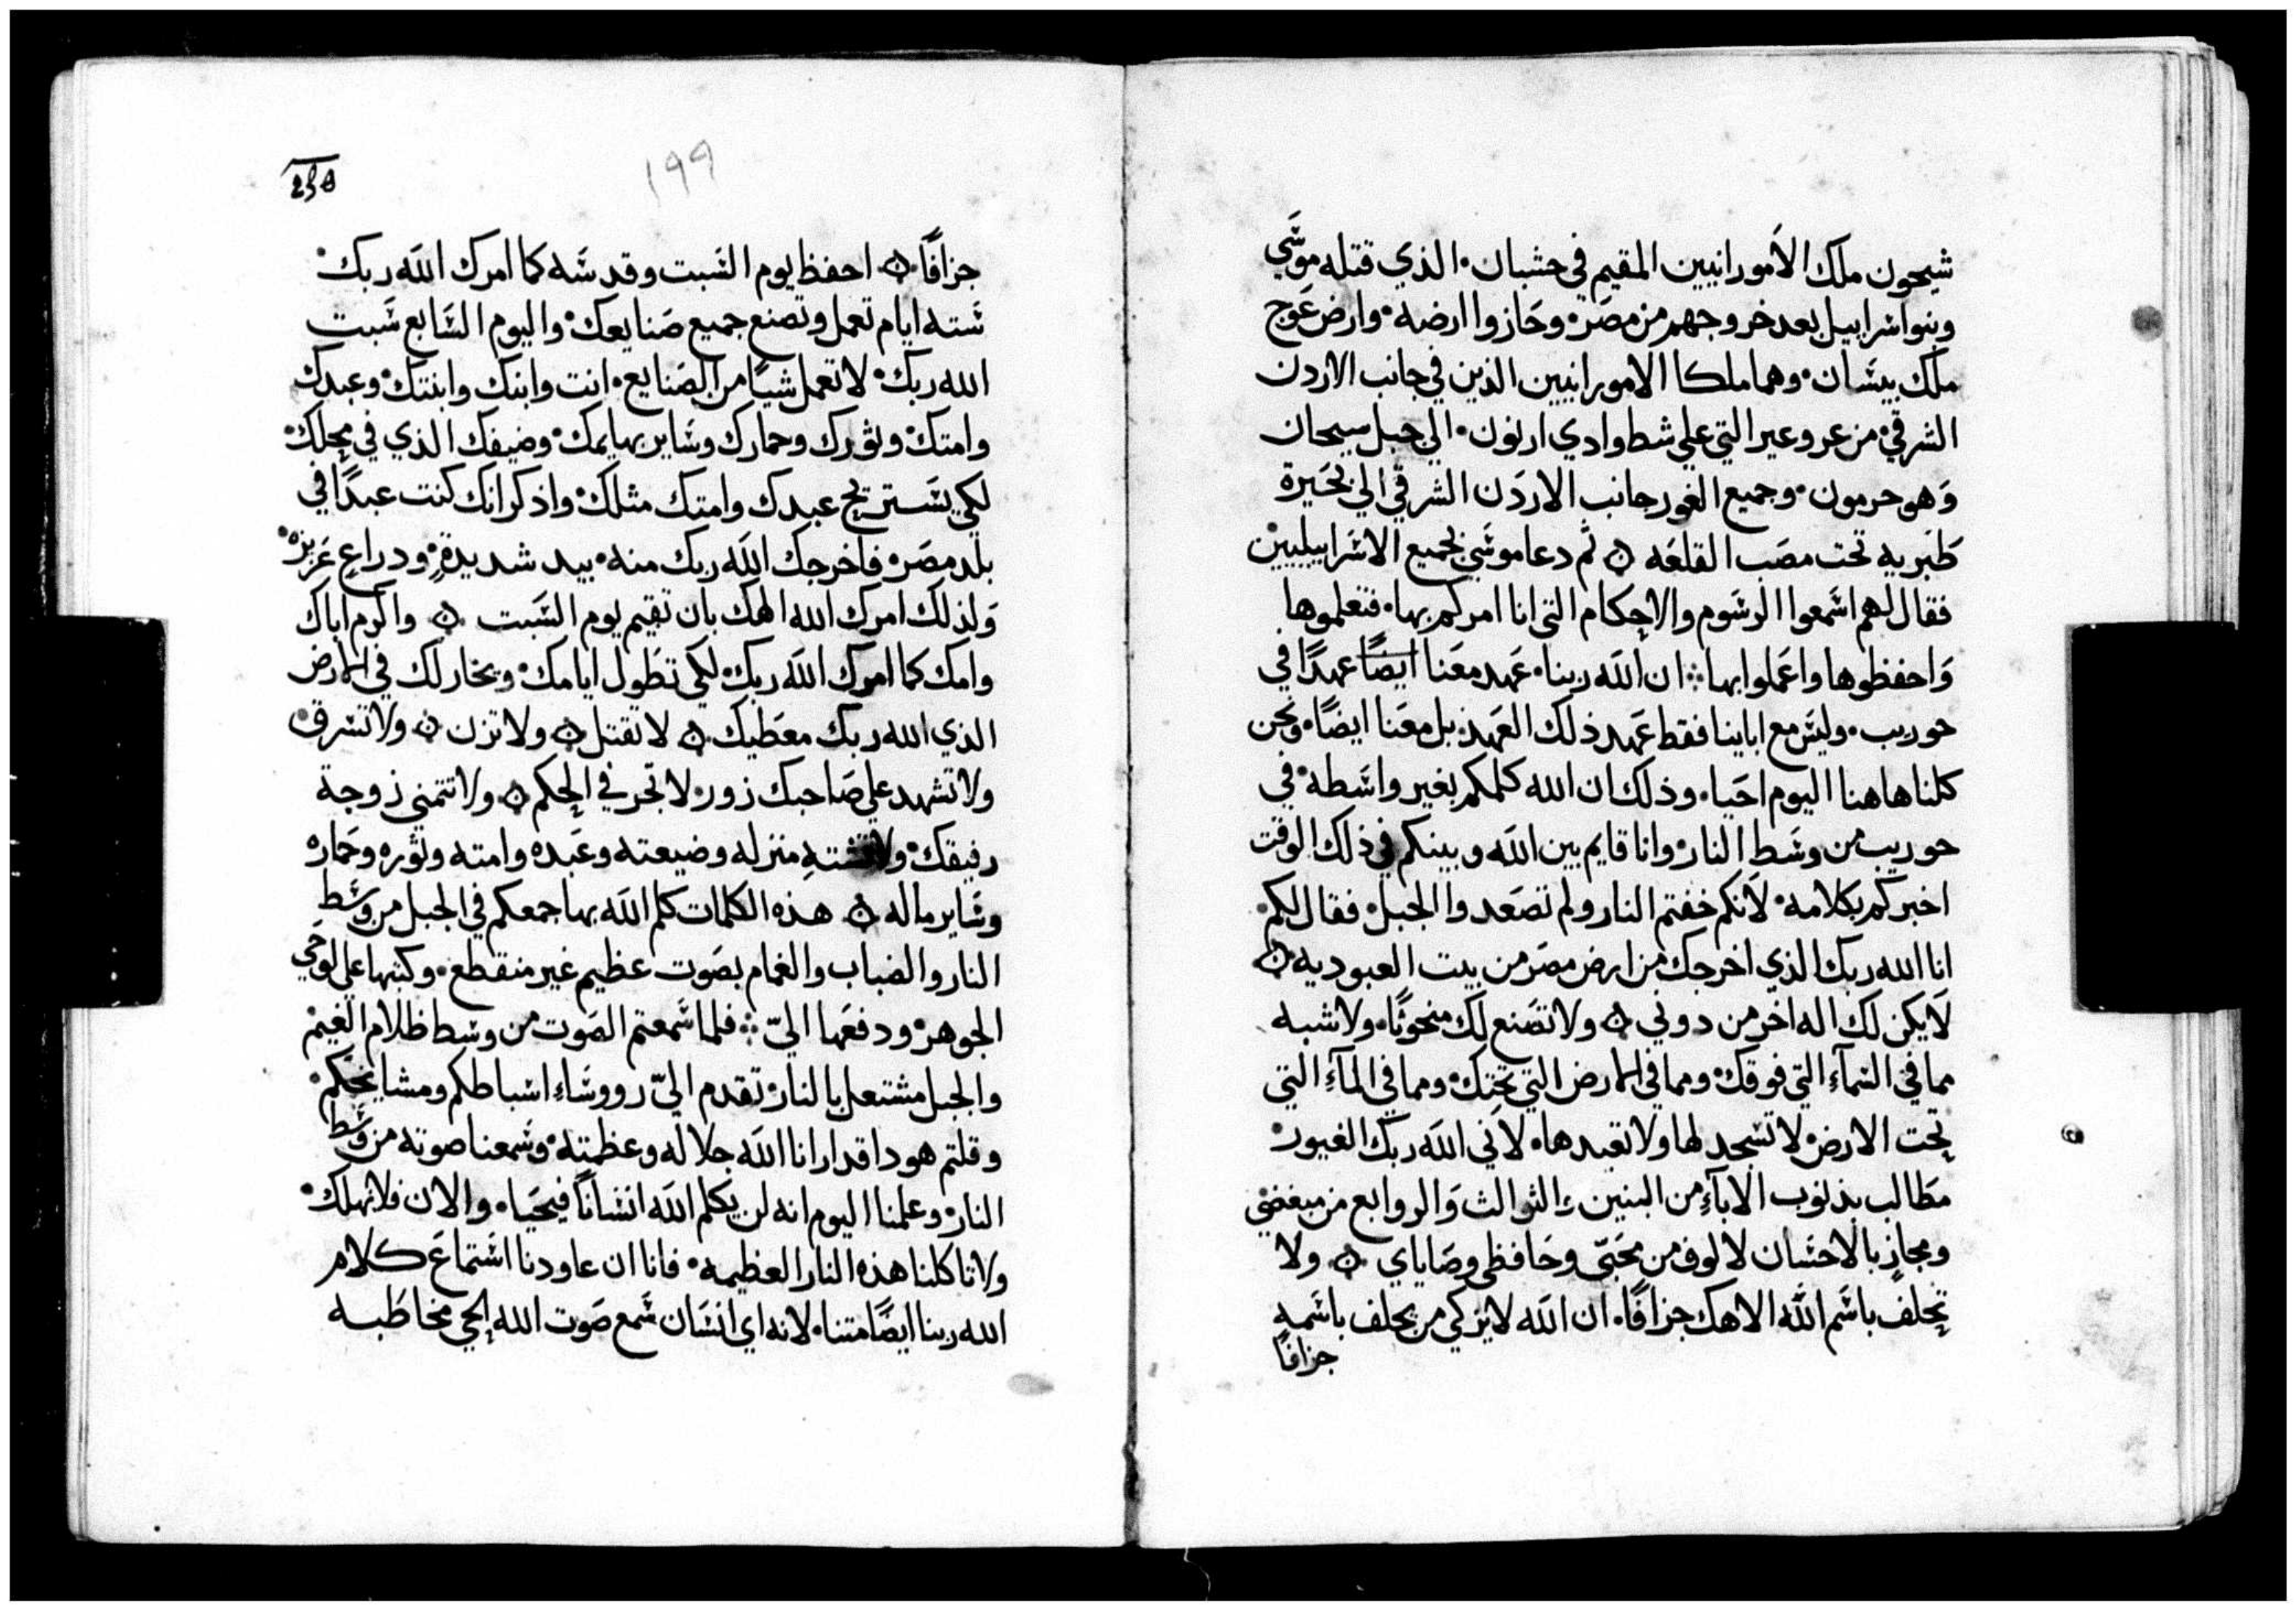 شيحون ملك الامورانيين المقيم في حشبان. الذي قتله موسي
وبنوا سراييل بعد خروجهم من مصر. وحازوا ارضه. وارض عوج
ملك بيسان. وهما ملكا الامورانيين الذين في جانب الاردن
الشرقي. من عروعير التي علي شط وادي ارنون. الي جبل سيحان
وهو حرمون. وجميع الغور جانب الاردن الشرقي الي بحيرة
طبريه تحت مصب القلعه ۞ ثم دعا موسي بجميع الاسراييليين
فقال لهم اسمعوا الرسوم والاحكام التي انا امركم بها. فتعلموها
واحفظوها واعملوا بها ⁘ ان الله ربنا. عهد معنا ايضًا عهدًا في
حوريب. وليس مع اباينا فقط عهد ذلك العهد. بل معنا ايضًا. ونحن
كلنا هاهنا اليوم احيا. وذلك ان الله كلمكم بغير واسطه. في
حوريب من وسط النار. وانا قايم بين الله وبينكم في ذلك الوقت
اخبركم بكلامه. لانكم خفتم النار ولم تصعدوا الجبل. فقال لكم.
انا الله ربك الذي اخرجك من ارض مصر من بيت العبوديه ۞
لا يكن لك اله اخر من دوني ۞ ولا تصنع لك منحوتًا. ولا شبه
مما في السمآءِ التي فوقك. ومما في الارض التي تحتك. ومما في المآءِ التي
تحت الارض. لا تسجد لها ولا تعبدها. لاني الله ربك الغيور.
مطالب بذنوب الابآءِ من البنين والثوالث والروابع من مبغضي
ومجازٍ بالاحسان لالوف من محبّي وحافظي وصاياي ۞ ولا
تحلف باسم الله الاهك جزافًا. ان الله لا يزكي من يحلف باسمه
جزافًا
١٩٩
جزافًا ۞ احفظ يوم السبت وقدسه كما امرك الله ربك.
سته ايام تعمل وتصنع جميع صنايعك. واليوم السابع سبت
الله ربك. لا تعمل شيًا من الصنايع. انت وابنك وابنتك. وعبدك
وامتك. وثورك وحمارك وساير بهايمك. وضيفك الذي في محلك.
لكي يستريح عبدك وامتك مثلك. واذكر انك كنت عبدًا في
بلد مصر. فاخرجك الله ربك منه. بيد شديدةٍ. ودراعٍ عزيزه.
ولذلك امرك الله الهك بان تقيم يوم السبت ۞ واكرم اباك
وامك كما امرك الله ربك. لكي تطول ايامك. ويخار لك في الارض
الذي الله ربك معطيك ۞ لا تقتل ۞ ولا تزن ۞ ولا تسرق.
ولا تشهد علي صاحبك زور. لا تجر في الحكم ۞ ولا تتمني زوجة
رفيقك. ولا تشتهِ منزله وضيعته وعبده وامته وثوره وحماره
وساير ماله ۞ هذه الكلمات كلم الله بها جمعكم في الجبل من وسط
النار والضباب والغمام بصوت عظيم غير منقطع. وكتبها علي لوحي
الجوهر. ودفعها اليّ ⁘ فلما سمعتم الصوت من وسط ظلام الغيم.
والجبل مشتعل بالنار. تقدم اليّ رووساءِ اسباطكم ومشايخكم.
وقلتم هودا قد ارانا الله جلاله وعظمته. وسمعنا صوته من وسط
النار. وعلمنا اليوم انه لن يكلم الله انسانًا فيحيا. والان فلا نهلك.
ولا تاكلنا هذه النار العظيمه. فانا ان عاودنا استماع كلام
الله ربنا ايضًا متنا. لانه اي انسان سمع صوت الله الحي مخاطبه